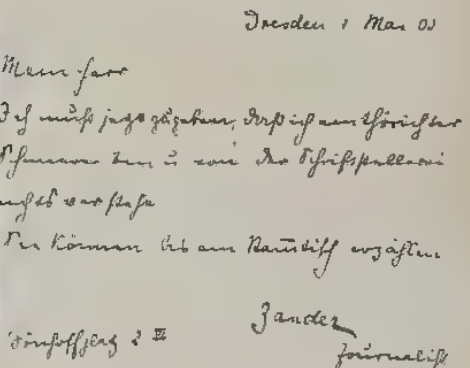 Dresden 1 Mai 02
Mein Herr
Ich muß jezt zugeben, daß ich ein thörichter
Schmierer bin u von der Schriftstellerei
nichts verstehe
Sie können es am Stam̅tisch erzählen
Zander
Journalist
Dönhoffplatz 2 III